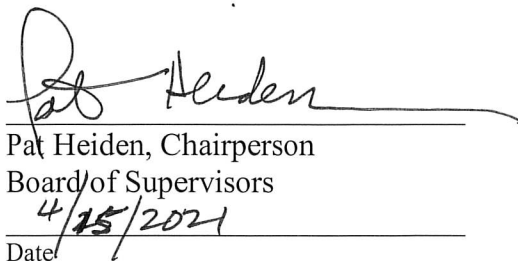 Pat Heiden
Pat Heiden, Chairperson
Board of Supervisors
4/15/2021
Date